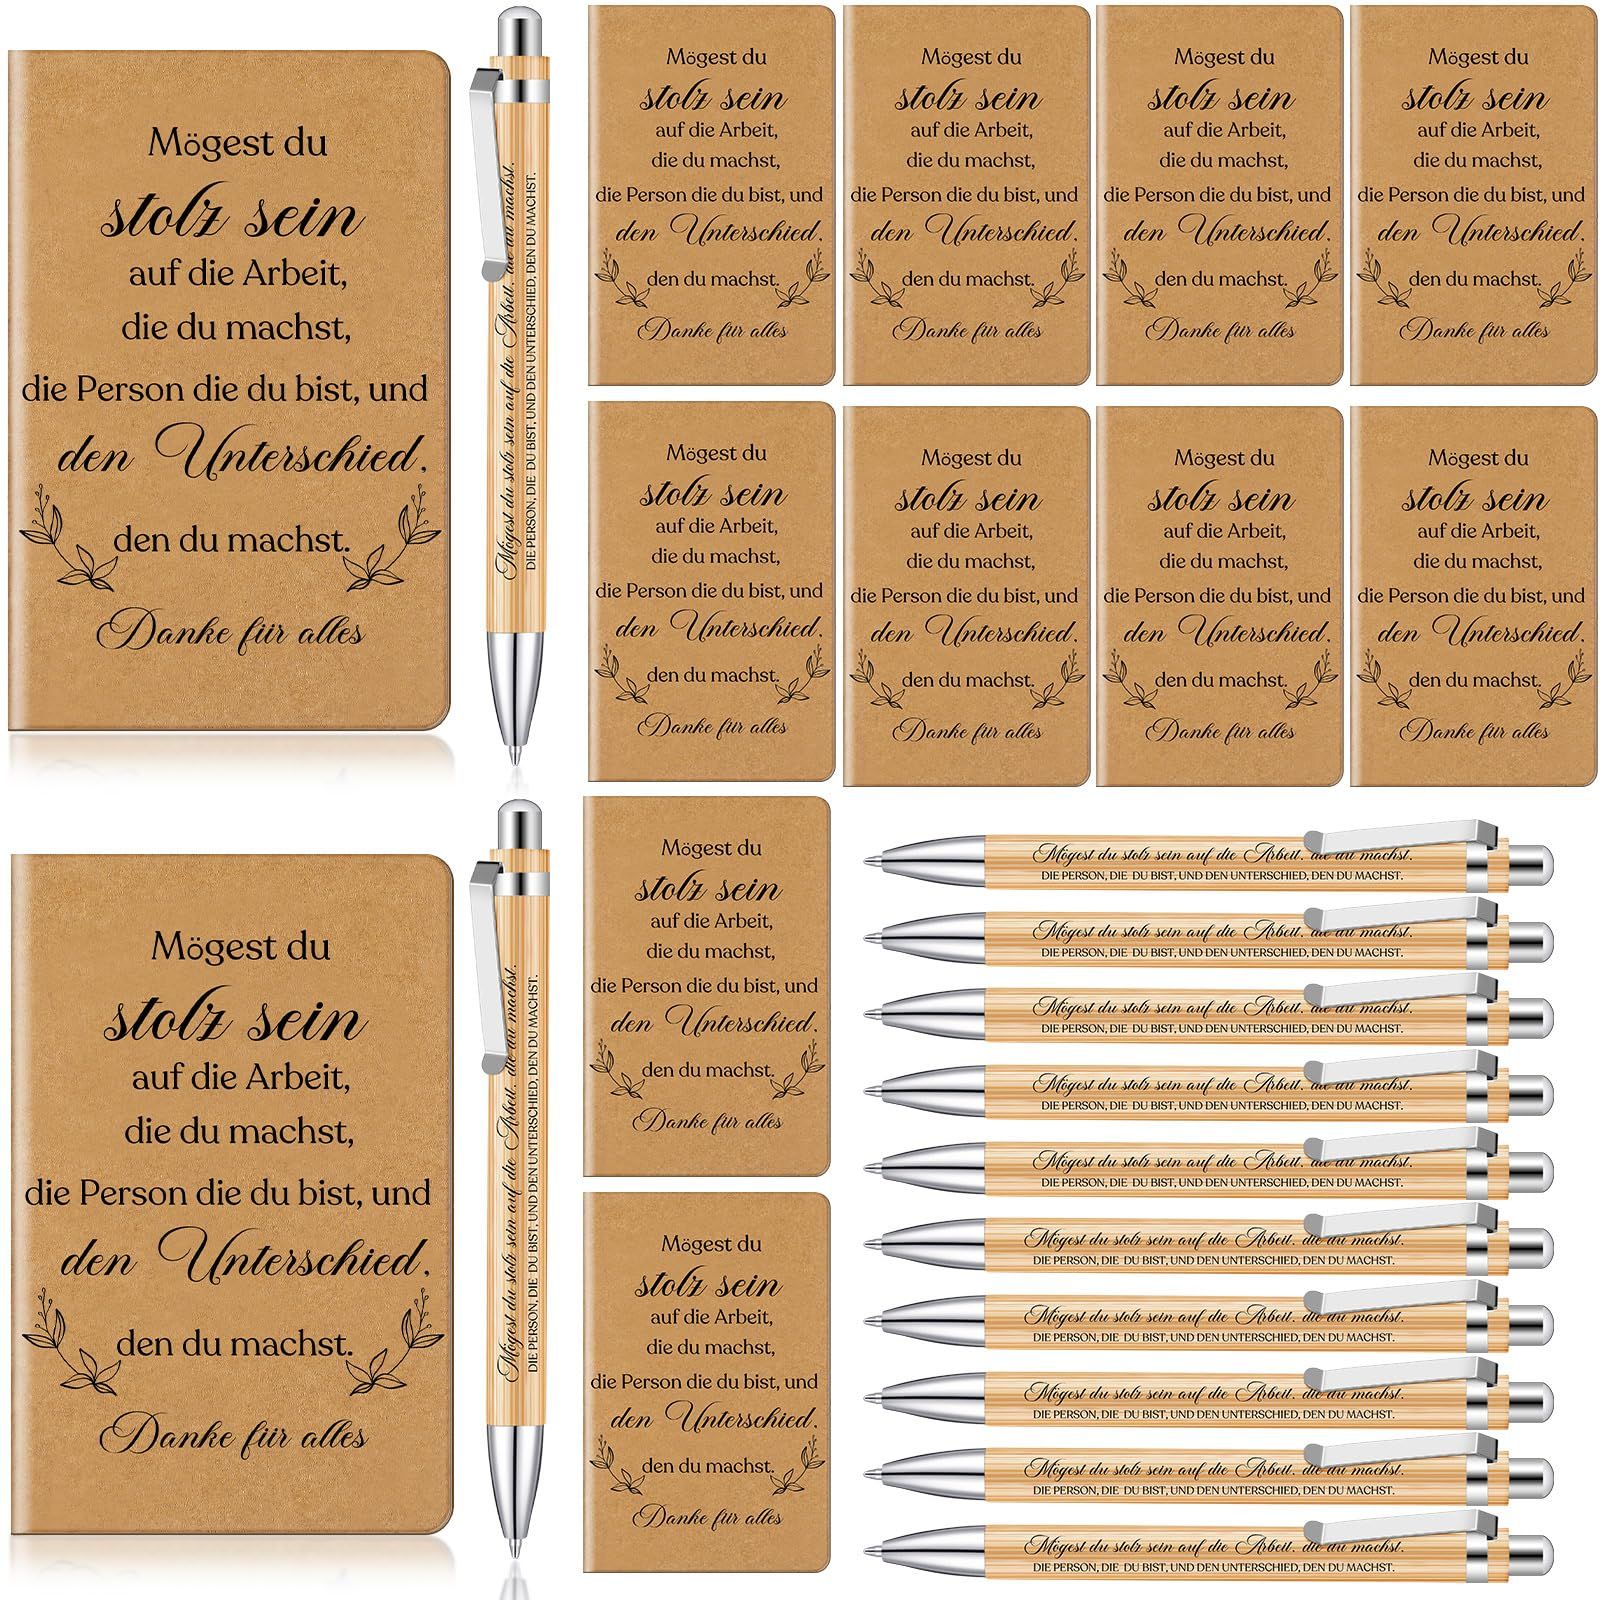 Mögest du
stolz sein
auf die Arbeit,
die du machst,
die Person die du bist, und
den Unterschied,
den du machst.
Danke für alles
Mögest du stolz sein auf die Arbeit, die du machst.
DIE PERSON, DIE DU BIST, UND DEN UNTERSCHIED, DEN DU MACHST.
Mögest du
stolz sein
auf die Arbeit,
die du machst,
die Person die du bist, und
den Unterschied,
den du machst.
Danke für alles
Mögest du
stolz sein
auf die Arbeit,
die du machst,
die Person die du bist, und
den Unterschied,
den du machst.
Danke für alles
Mögest du
stolz sein
auf die Arbeit,
die du machst,
die Person die du bist, und
den Unterschied,
den du machst.
Danke für alles
Mögest du
stolz sein
auf die Arbeit,
die du machst,
die Person die du bist, und
den Unterschied,
den du machst.
Danke für alles
Mögest du
stolz sein
auf die Arbeit,
die du machst,
die Person die du bist, und
den Unterschied,
den du machst.
Danke für alles
Mögest du
stolz sein
auf die Arbeit,
die du machst,
die Person die du bist, und
den Unterschied,
den du machst.
Danke für alles
Mögest du
stolz sein
auf die Arbeit,
die du machst,
die Person die du bist, und
den Unterschied,
den du machst.
Danke für alles
Mögest du
stolz sein
auf die Arbeit,
die du machst,
die Person die du bist, und
den Unterschied,
den du machst.
Danke für alles
Mögest du
stolz sein
auf die Arbeit,
die du machst,
die Person die du bist, und
den Unterschied,
den du machst.
Danke für alles
Mögest du stolz sein auf die Arbeit, die du machst.
DIE PERSON, DIE DU BIST, UND DEN UNTERSCHIED, DEN DU MACHST.
Mögest du
stolz sein
auf die Arbeit,
die du machst,
die Person die du bist, und
den Unterschied,
den du machst.
Danke für alles
Mögest du
stolz sein
auf die Arbeit,
die du machst,
die Person die du bist, und
den Unterschied,
den du machst.
Danke für alles
Mögest du stolz sein auf die Arbeit, die du machst.
DIE PERSON, DIE DU BIST, UND DEN UNTERSCHIED, DEN DU MACHST.
Mögest du stolz sein auf die Arbeit, die du machst.
DIE PERSON, DIE DU BIST, UND DEN UNTERSCHIED, DEN DU MACHST.
Mögest du stolz sein auf die Arbeit, die du machst.
DIE PERSON, DIE DU BIST, UND DEN UNTERSCHIED, DEN DU MACHST.
Mögest du stolz sein auf die Arbeit, die du machst.
DIE PERSON, DIE DU BIST, UND DEN UNTERSCHIED, DEN DU MACHST.
Mögest du stolz sein auf die Arbeit, die du machst.
DIE PERSON, DIE DU BIST, UND DEN UNTERSCHIED, DEN DU MACHST.
Mögest du stolz sein auf die Arbeit, die du machst.
DIE PERSON, DIE DU BIST, UND DEN UNTERSCHIED, DEN DU MACHST.
Mögest du stolz sein auf die Arbeit, die du machst.
DIE PERSON, DIE DU BIST, UND DEN UNTERSCHIED, DEN DU MACHST.
Mögest du stolz sein auf die Arbeit, die du machst.
DIE PERSON, DIE DU BIST, UND DEN UNTERSCHIED, DEN DU MACHST.
Mögest du stolz sein auf die Arbeit, die du machst.
DIE PERSON, DIE DU BIST, UND DEN UNTERSCHIED, DEN DU MACHST.
Mögest du stolz sein auf die Arbeit, die du machst.
DIE PERSON, DIE DU BIST, UND DEN UNTERSCHIED, DEN DU MACHST.